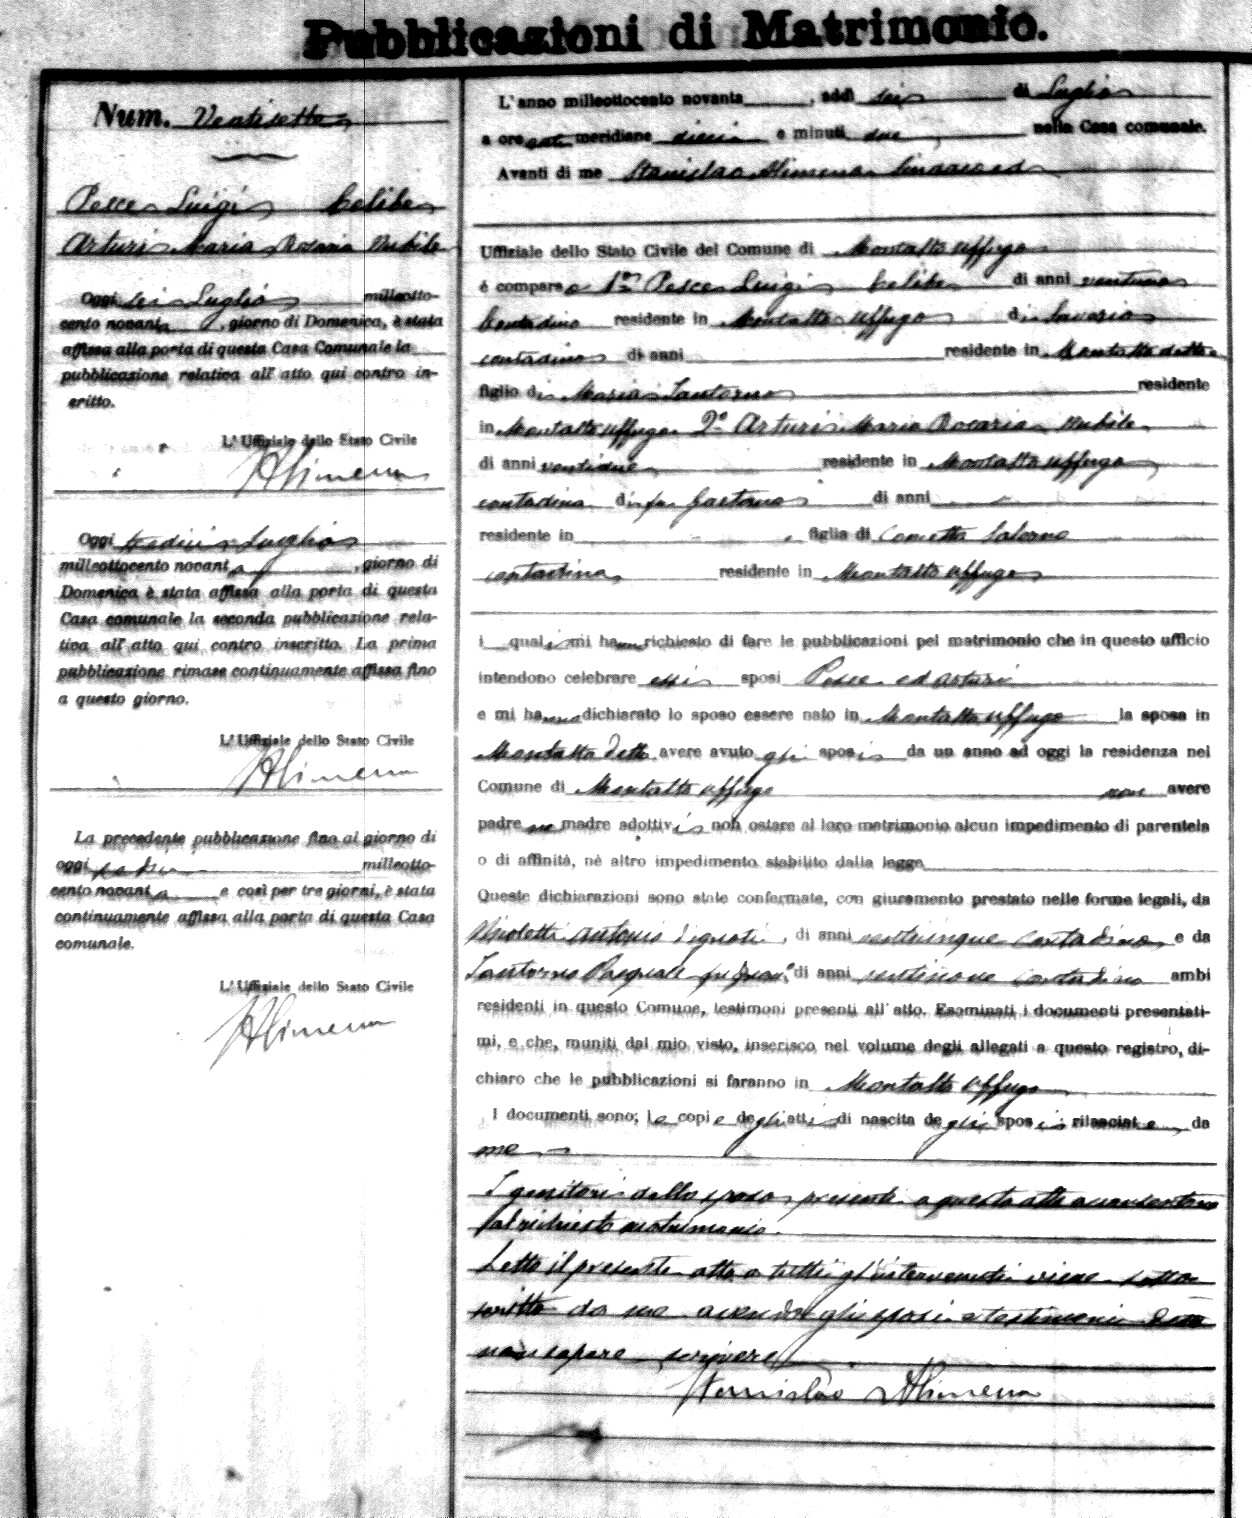 Pubblicazioni di Matrimonio.
Num. Ventisette
Pesce Luigi Celibe
Arturi Maria Rosaria Nubile
Oggi sei Luglio milleotto-
cento novanta, giorno di Domenica, è stata
affissa alla porta di questa Casa Comunale la
pubblicazione relativa all' atto qui contro in-
scritto.
L' Uffiziale dello Stato Civile
SAlimena
Oggi tredici Luglio
milleottocento novanta, giorno di
Domenica è stata affissa alla porta di questa
Casa comunale la seconda pubblicazione rela-
tiva all' atto qui contro inscritto. La prima
pubblicazione rimase continuamente affissa fino
a questo giorno.
L' Uffiziale dello Stato Civile
SAlimena
La precedente pubblicazione fino al giorno di
oggi milleotto-
cento novanta e così per tre giorni, è stata
continuamente affissa alla porta di questa Casa
comunale.
L' Uffiziale dello Stato Civile
SAlimena
L' anno milleottocento novanta, addì sei di Luglio
a ore anti meridiane dieci e minuti due, nella Casa comunale.
Avanti di me Stanislao Alimena Sindaco ed
Uffiziale dello Stato Civile del Comune di Montalto Uffugo
è comparso 1° Pesce Luigi celibe di anni ventuno
Contadino residente in Montalto Uffugo di Saverio
contadino di anni residente in Montalto detto
figlio di Maria Santorno residente
in Montalto Uffugo 2° Arturi Maria Rosaria nubile
di anni ventidue residente in Montalto Uffugo
contadina di fu Gaetano di anni
residente in figlia di Concetta Salerno
contadina, residente in Montalto Uffugo
i quali mi hanno richiesto di fare le pubblicazioni pel matrimonio che in questo ufficio
intendono celebrare essi sposi Pesce ed Arturi
e mi hanno dichiarato lo sposo essere nato in Montalto Uffugo la sposa in
Montalto detto avere avuto gli sposi da un anno ad oggi la residenza nel
Comune di Montalto Uffugo non avere
padre ne madre adottivi non ostare al loro matrimonio alcun impedimento di parentela
o di affinità, nè altro impedimento stabilito dalla legge
Queste dichiarazioni sono state confermate, con giuramento prestato nelle forme legali, da
Antonio d'ignoti, di anni venticinque contadino, e da
Santorno Pasquale fu di anni ventinove contadino ambi
residenti in questo Comune, testimoni presenti all' atto. Esaminati i documenti presentati-
mi, e che, muniti dal mio visto, inserisco nel volume degli allegati a questo registro, di-
chiaro che le pubblicazioni si faranno in Montalto Uffugo
I documenti sono; le copie degli atti di nascita degli sposi rilasciate, da
me
I genitori dello sposo presente a questo atto acconsentono
al richiesto matrimonio.
Letto il presente atto a tutti gl'intervenuti viene sotto
scritto da me avendo gli sposi e testimoni detto
non sapere scrivere.
Stanislao Alimena